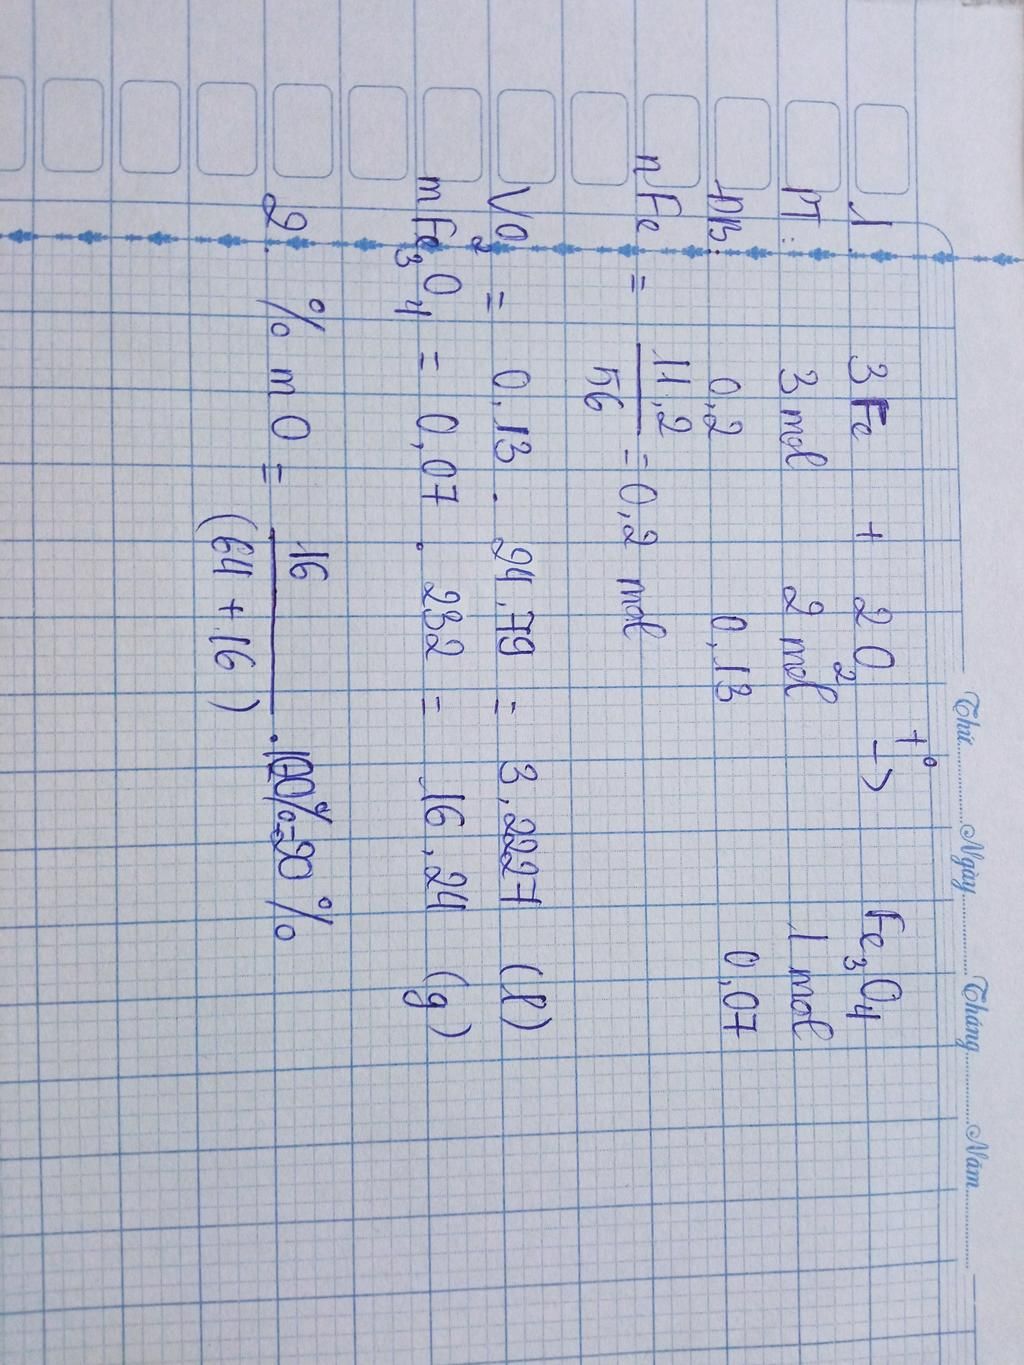 Thứ............Ngày............Tháng............Năm............
1. 3Fe + 2O2 t° -> Fe3O4
PT: 3 mol 2 mol 1 mol
ĐB: 0,2 0,13 0,07
nFe = 11,2/56 = 0,2 mol
VO2 = 0,13 . 24,79 = 3,2227 (l)
mFe3O4 = 0,07 . 232 = 16,24 (g)
2. % m O = 16/(64 + 16) . 100% = 20 %